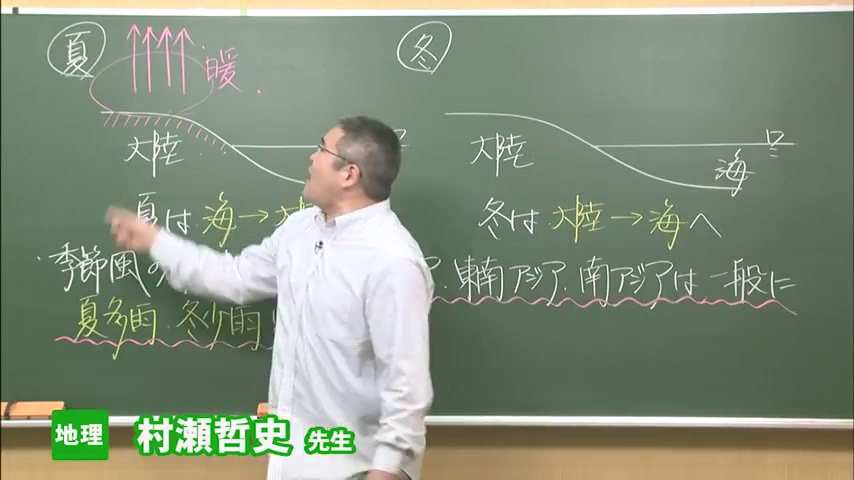 夏
暖
冬
大陸
大陸
海
夏は 海→大
冬は 大陸→海へ
季節風の
東南アジア.南アジアは一般に
夏多雨.冬少雨
地理 村瀬哲史 先生